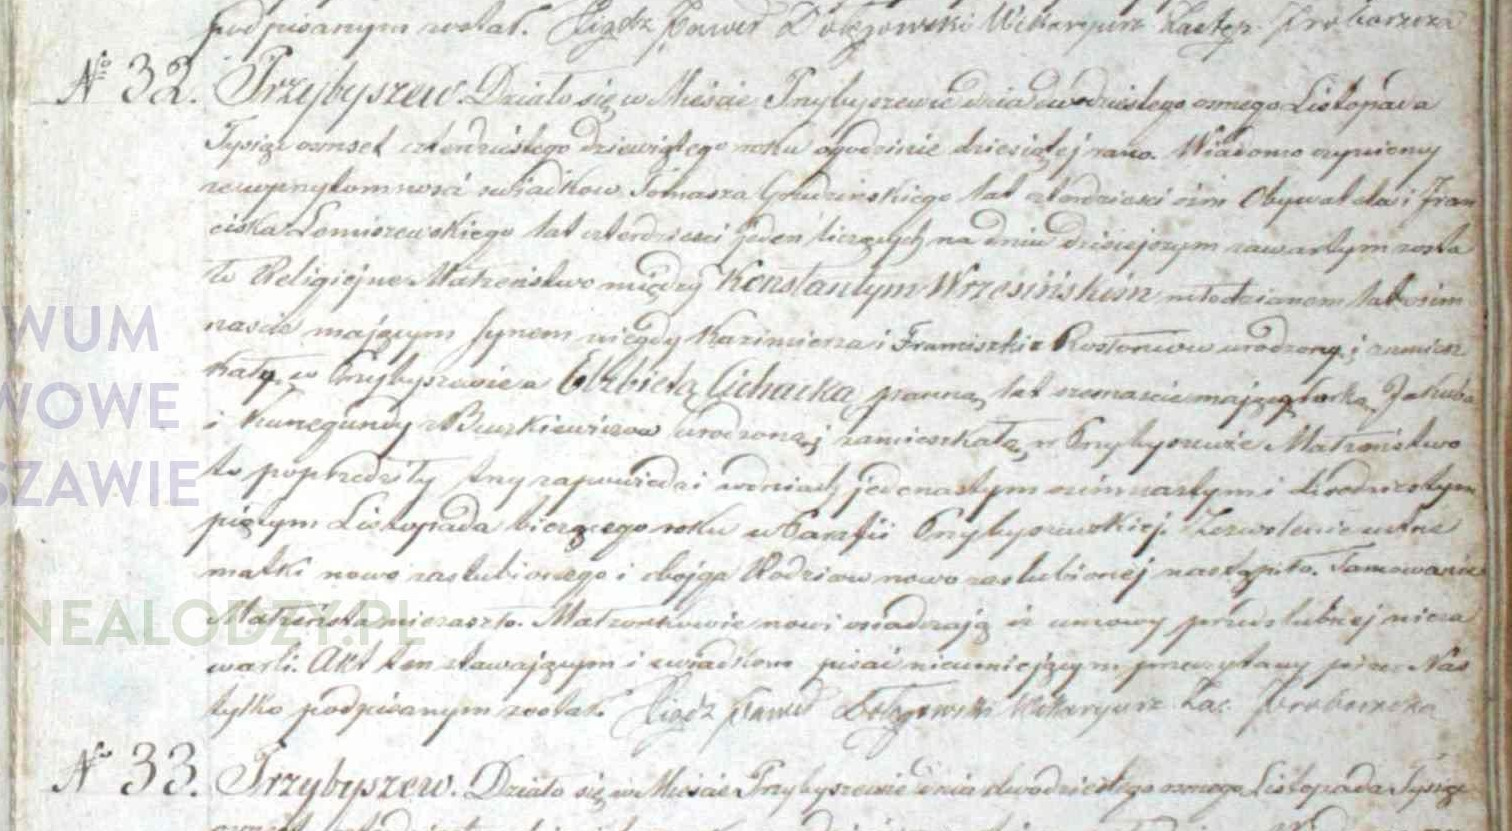 podpisanym został. Xiądz Paweł Wikaryusz Zastęp. Proboszcza
No 32. Przybyszew. Działo się w Mieście Przybyszewie dnia dwudziestego osmego Listopada
Tysiąc osmset czterdziestego dziewiątego roku o godzinie dziesiątej rano. Wiadomo czyniemy
ze w przytomnosci swiadkow Tomasza Grudzinskiego lat czterdziesci ośm Obywatela i Fran
ciszka Tomiszewskiego lat czterdziesci jeden liczących na dniu dzisiejszym zawartym zosta
ło Religijne Małżeństwo między Konstantym Wrzesińskim młodzianem lat osim
nascie mającym synem niegdy Kazimierza i Franciszki z urodzony i zamiesz
kały w Przybyszewie a Elżbietą Cichacką panną lat szesnascie mającą corką Jakuba
i Kunegundy z urodzoną i zamieszkałą w Przybyszewie Małżeństwo
to poprzedziły trzy zapowiedzi w dniach jedenastym osimnastym i dwudziestym
piątym Listopada bieżącego roku w Parafii Przybyszewskiej. Zezwolenie ustne
matki nowo zaslubionego i obojga Rodzicow nowo zaslubionej nastąpiło. Tamowanie
Małżeństwa nie zaszło. Małżonkowie nowi osiadczają iż umowy przedslubnej nieza
warli. Akt ten stawającym i swiadkom pisać nieumiejącym przeczytany przez Nas
tylko podpisanym został. Xiądz Paweł Wikaryusz Zas. Proboszcza
No 33. Przybyszew. Działo się w Mieście Przybyszewie dnia dwudziestego osmego Listopada Tysiąc
WUM
WOWE
SZAWIE
ENEALODZY.PL